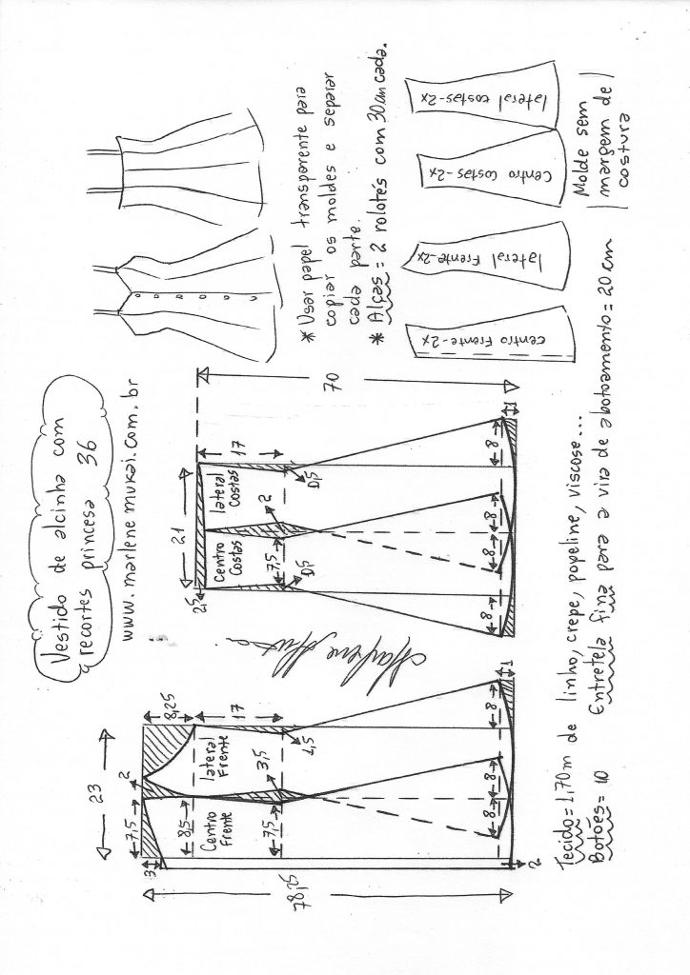 Vestido de alcinha com
recortes princesa 36
www.marlenemukai.com.br
* Usar papel transparente para
copiar os moldes e separar
cada parte.
* Alças = 2 rolotés com 30cm cada.
23
7,5
2
8,25
3
8,5
17
Centro
Frente
lateral
Frente
7,5
3,5
1,5
78,25
8
8
8
1
2
21
2,5
17
70
Centro
Costas
lateral
Costas
7,5
2
0,5
0,5
8
8
8
8
1
centro Frente-2x
lateral Frente-2x
Centro Costas-2x
lateral costas-2x
Molde sem
margem de
costura
Tecido=1,70m de linho, crepe, popeline, viscose...
Botões= 10 Entretela fina para a vira de abotoamento= 20 cm